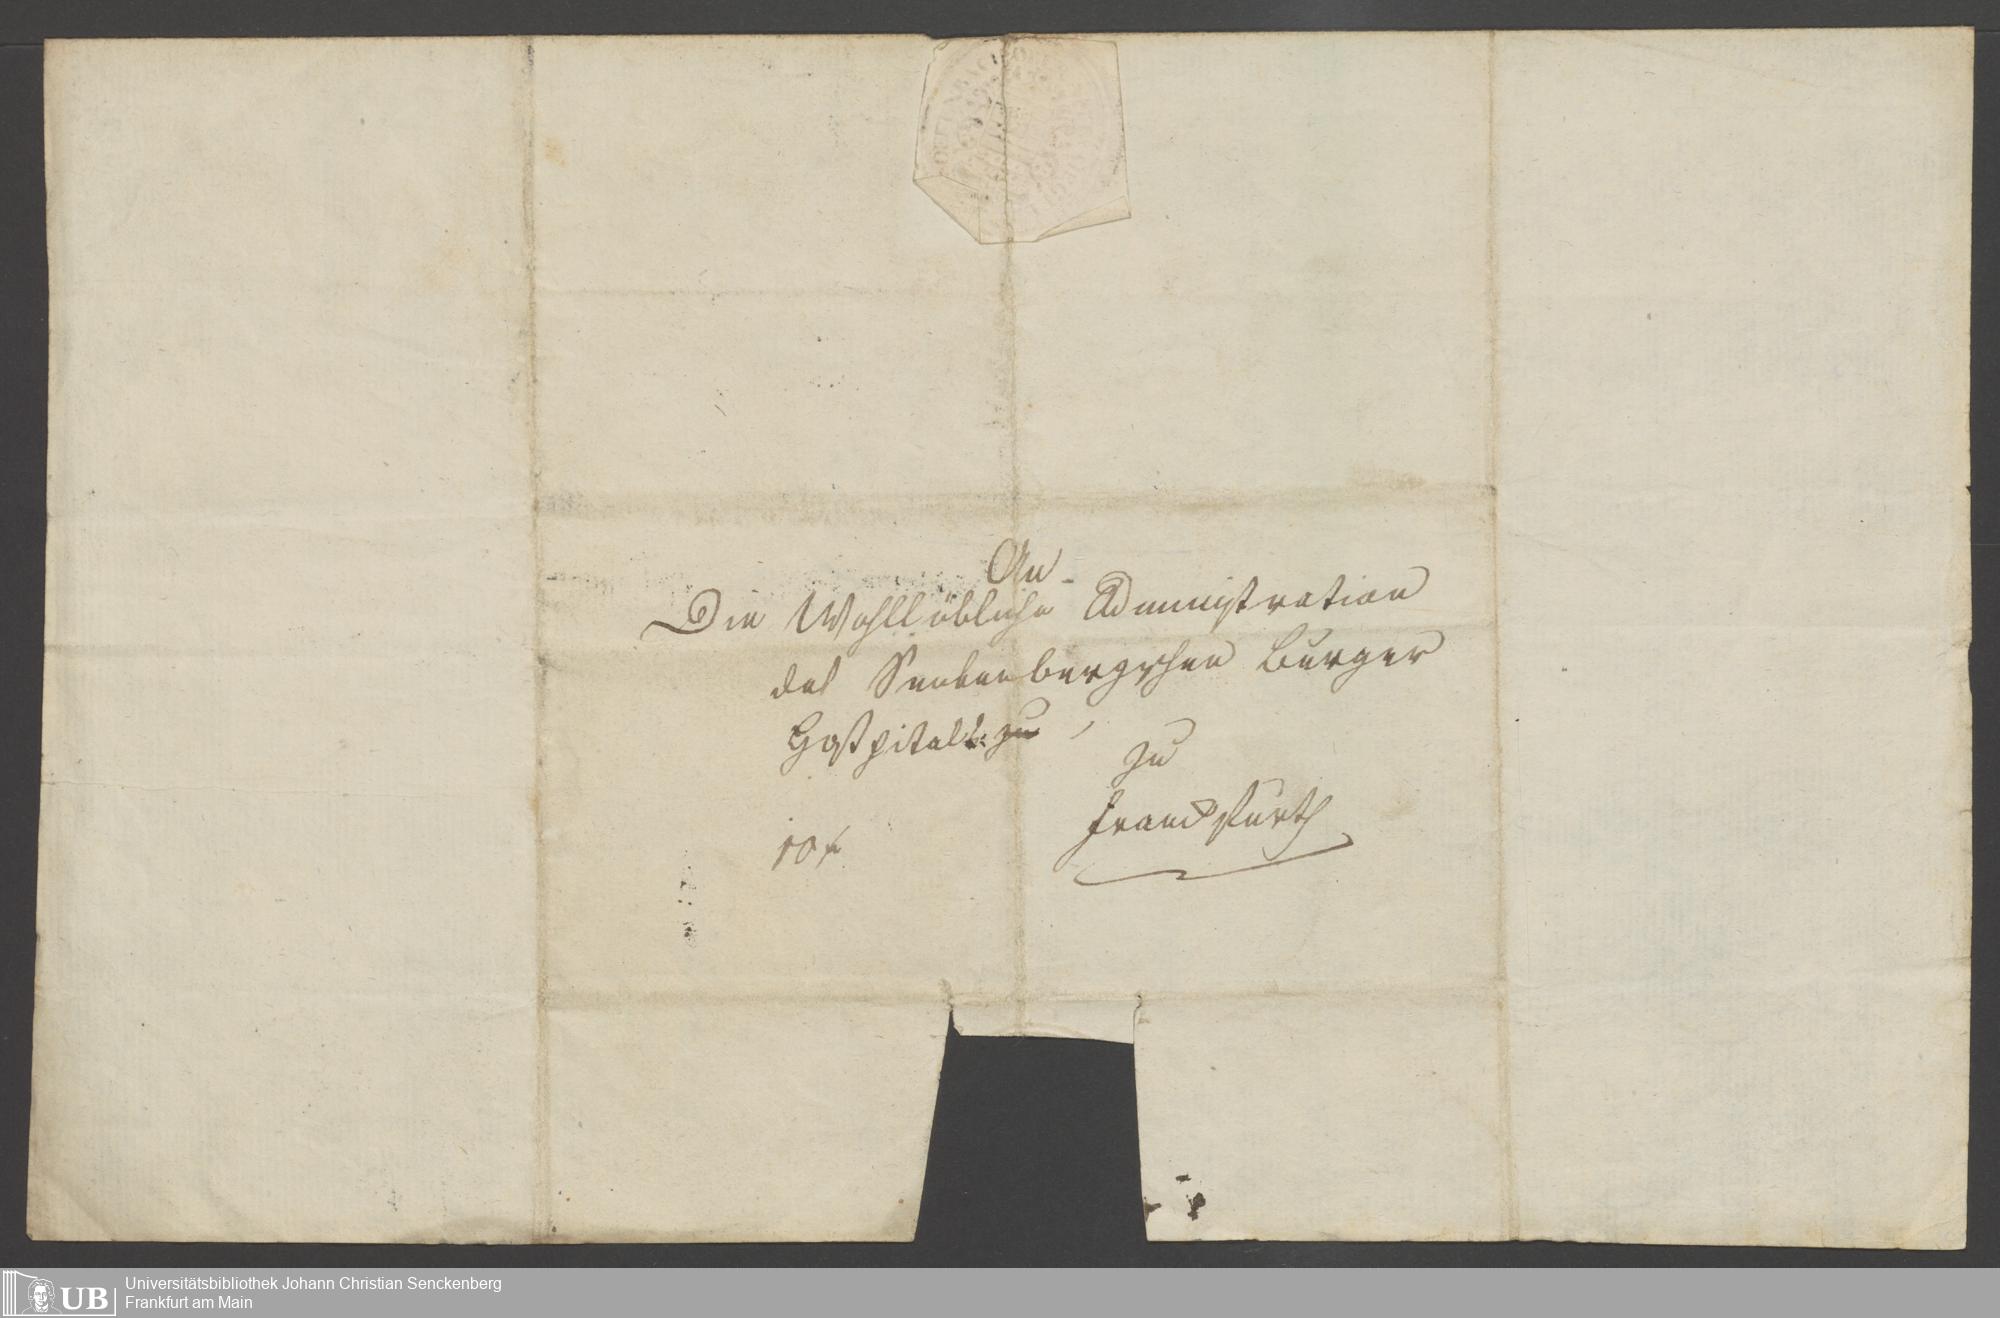 An
Die Wohllöbliche Administration
des Senkenbergschen Burger
Hospitals: zu
zu
Franckfurth
10 f
UB
Universitätsbibliothek Johann Christian Senckenberg
Frankfurt am Main